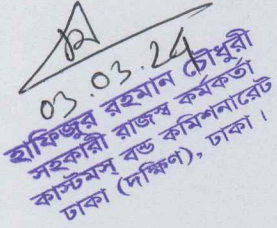 03.03.24
হাফিজুর রহমান চৌধুরী
সহকারী রাজস্ব কর্মকর্তা
কাস্টমস্ বন্ড কমিশনারেট
ঢাকা (দক্ষিণ), ঢাকা।